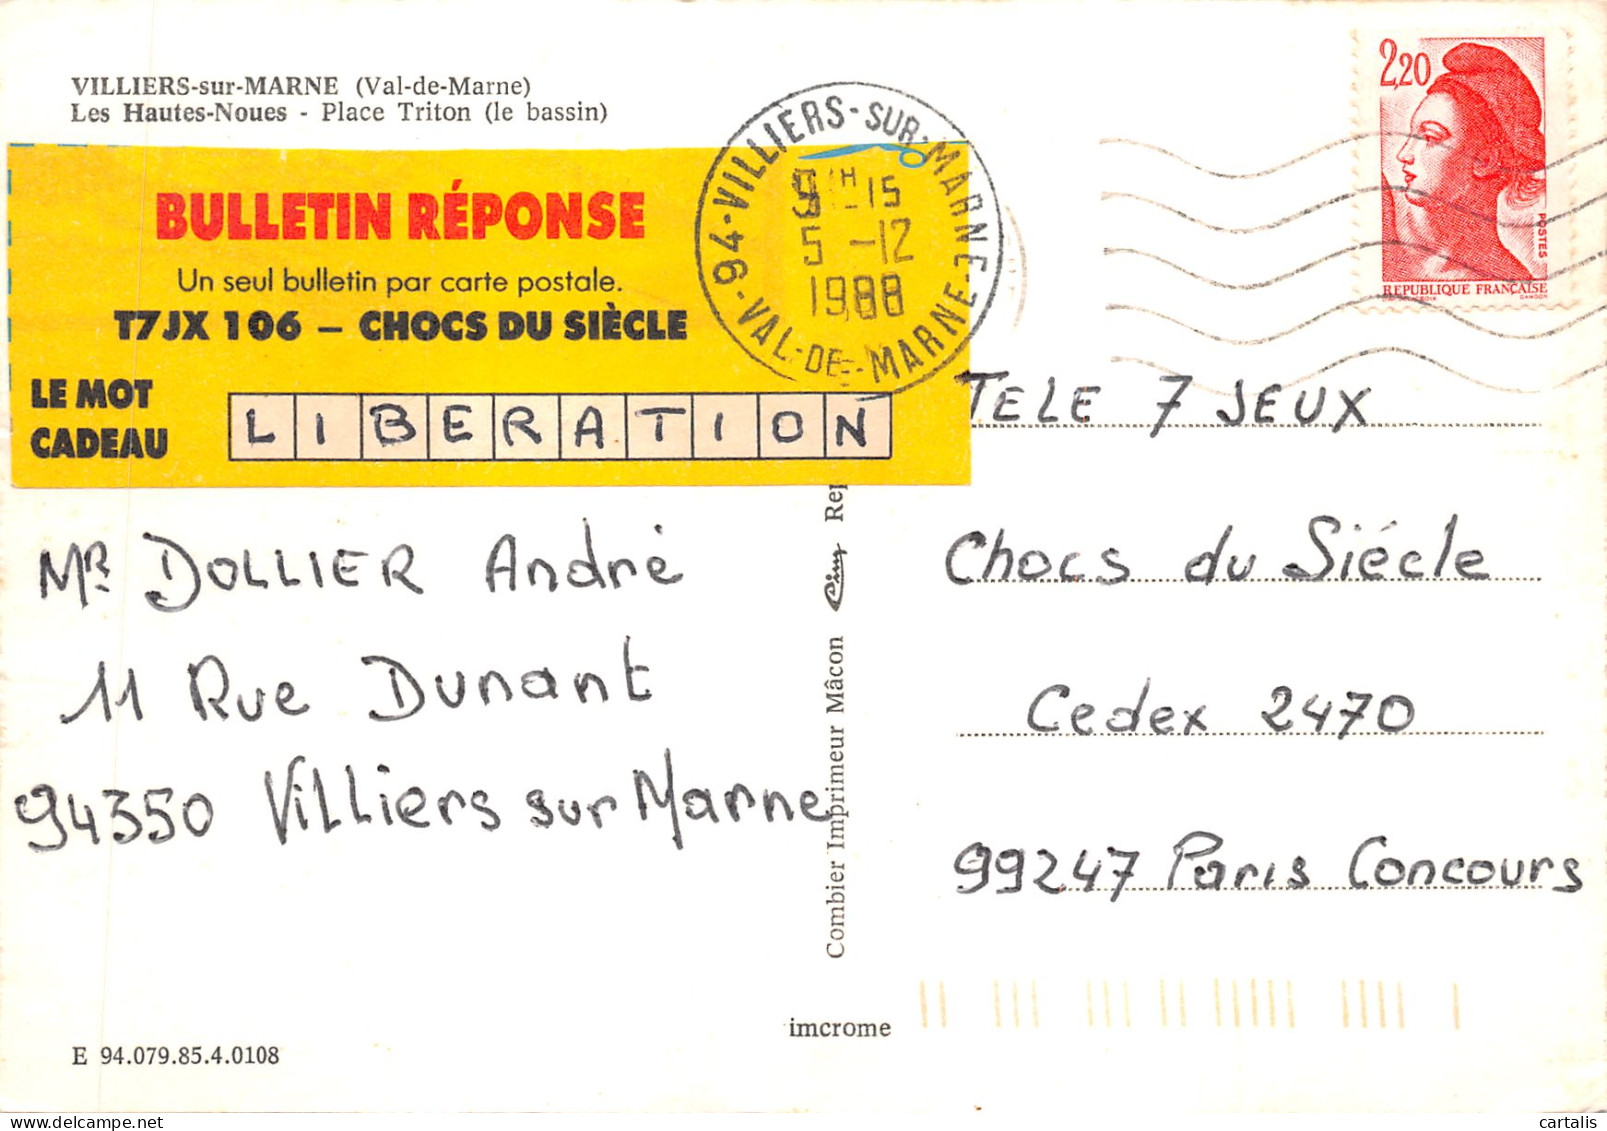 VILLIERS-sur-MARNE (Val-de-Marne)
Les Hautes-Noues - Place Triton (le bassin)
BULLETIN RÉPONSE
Un seul bulletin par carte postale.
T7JX 106 – CHOCS DU SIÈCLE
LE MOT
CADEAU
LIBERATION
94-VILLIERS-SUR-MARNE-VAL-DE-MARNE
15
5 -12
1988
2,20
POSTES
REPUBLIQUE FRANÇAISE
GANDON
TELE 7 JEUX
Chocs du Siécle
Cedex 2470
99247 Paris Concours
MR DOLLIER André
11 Rue Dunant
94350 Villiers sur Marne
Combier Imprimeur Mâcon Cim Rep
imcrome
E 94.079.85.4.0108
cartalis
delcampe.net